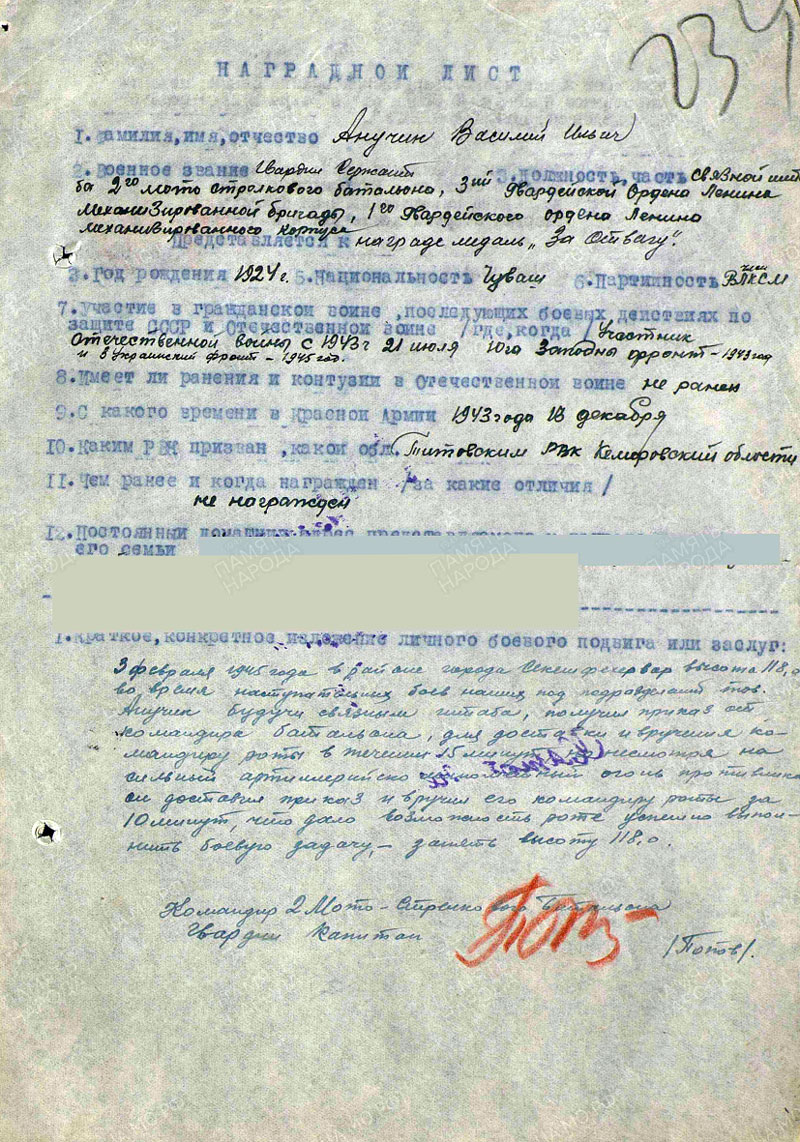 234
НАГРАДНОЙ ЛИСТ
1. Фамилия, имя, отчество Анучин Василий Ильич
2. Военное звание Гвардии Сержант 3. Должность, часть Связной шта
ба 2го мото стрелкового батальона, 3ий Гвардейской Ордена Ленина
механизированной бригады, 1го Гвардейского ордена Ленина
механизированного корпуса
Представляется к награде медаль „За Отвагу".
3. Год рождения 1924 г. 5. Национальность Чуваш 6. Партийность член ВЛКСМ
7. Участие в гражданской войне, последующих боевых действиях по
защите СССР и Отечественной войне /где, когда/ Участник
Отечественной войны с 1943 г 21 июля Юго Западны фронт - 1943 год
и 3 Украинский фронт - 1945 год.
8. Имеет ли ранения и контузии в Отечественной войне не ранен
9. С какого времени в Красной Армии 1943 года 18 декабря
10. Каким РВК призван, какой обл. Титовским РВК Кемеровский области
11. Чем ранее и когда награжден /за какие отличия/
не награжден
12. Постоянный домашний адрес представляемого к
его семьи
1. Краткое, конкретное изложение личного боевого подвига или заслуг:
3 февраля 1945 года в районе города высота 118,0
во время наступательных боев наших подразделений тов.
Анучин будучи связным штаба, получил приказ от
командира батальона, для доставки и вручения ко-
мандиру роты в течении 15 минут, несмотря на
сильный артиллерийско огонь противника
он доставил приказ и вручил его командиру роты за
10 минут, что дало возможность роте успешно выпол-
нить боевую задачу, - занять высоту 118,0.
Командир 2 Мото-Стрелкового Батальона
Гвардии капитан /Попов/.